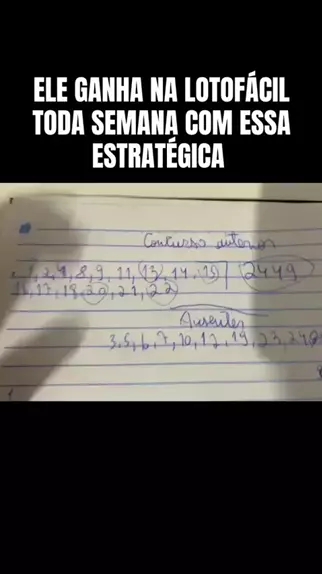 ELE GANHA NA LOTOFÁCIL
TODA SEMANA COM ESSA
ESTRATÉGICA
Concurso anterior
1, 2, 4, 8, 9, 11, 13, 14, 15 | 2449
16, 17, 18, 20, 21, 22
Ausentes
3, 5, 6, 7, 10, 12, 19, 23, 24